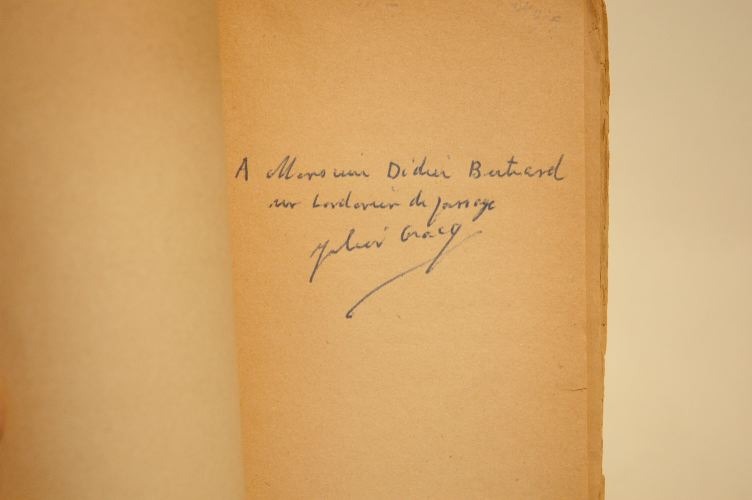 A Monsieur Didier Bertrand
un londonien de passage
Julien Gracq